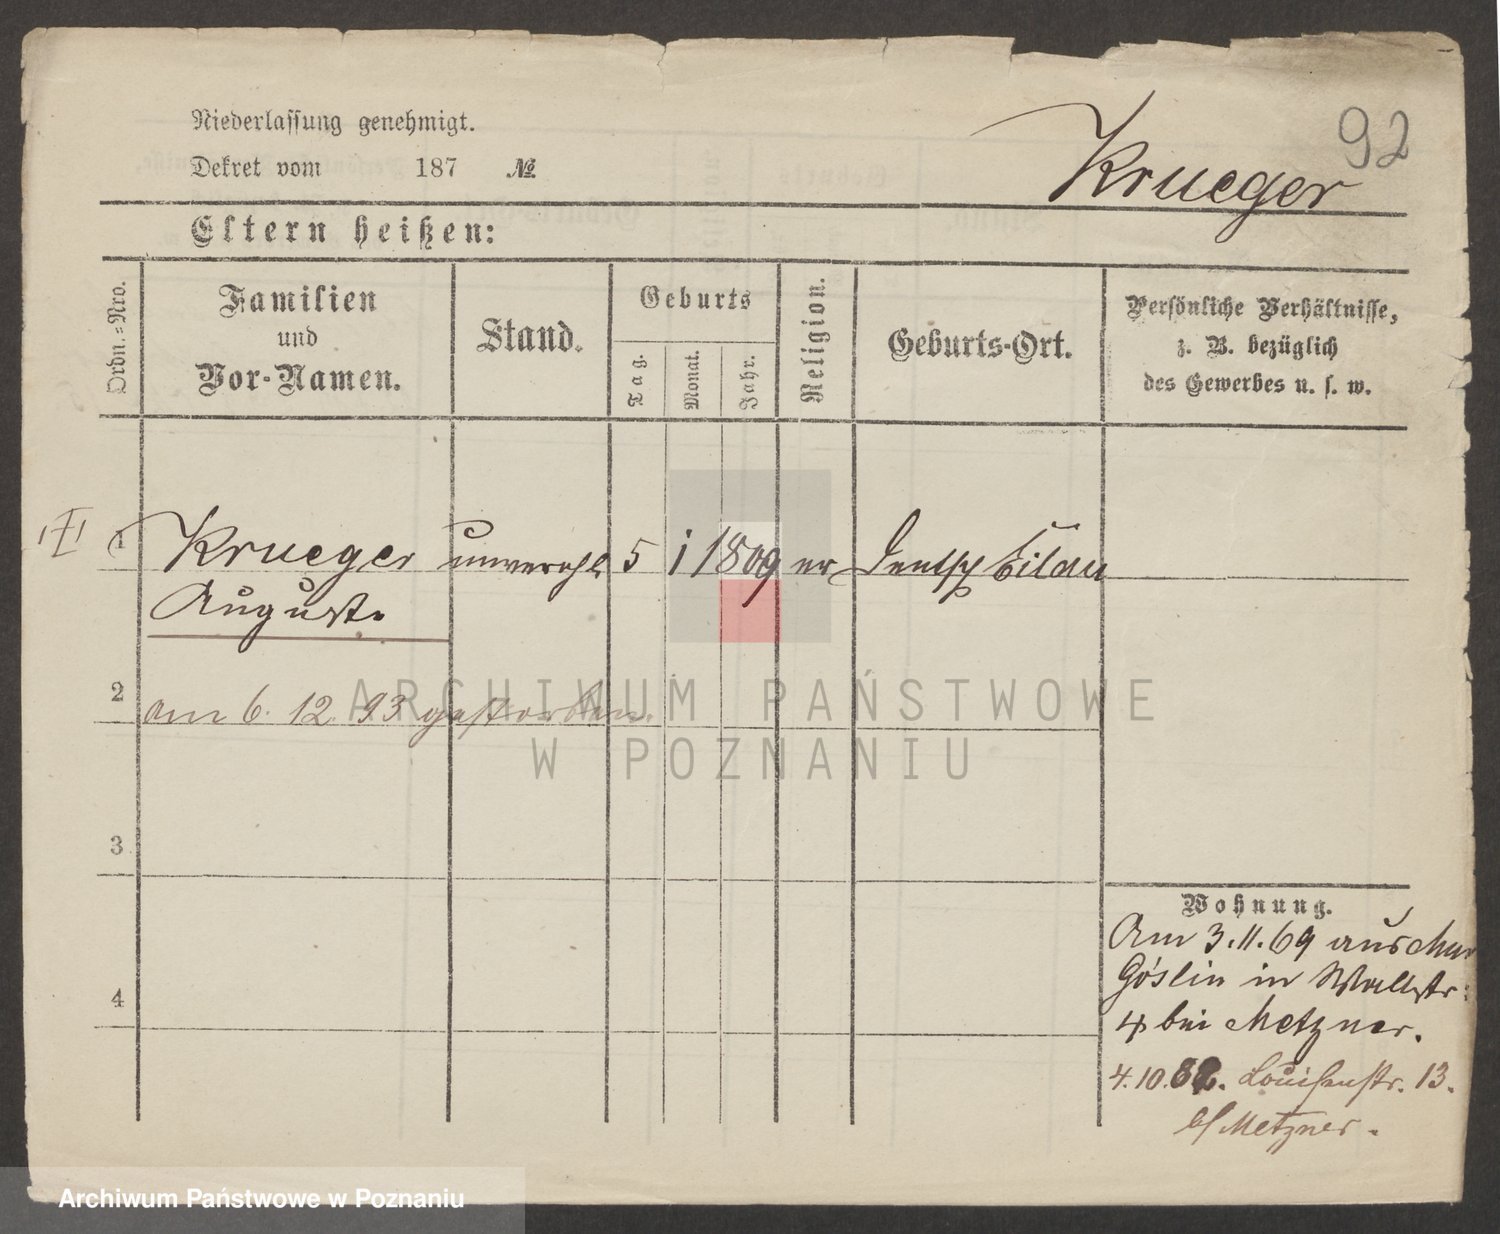 Niederlassung genehmigt.
Dekret vom 187 №
Krueger
92
Eltern heißen:
Ordn.-Nro.
Familien
und
Vor-Namen.
Stand.
Geburts
Tag.
Monat.
Jahr.
Religion.
Geburts-Ort.
Persönliche Verhältnisse,
z. B. bezüglich
des Gewerbes u. s. w.
1 Krueger unverehl 5 1 1809 ev Deutsch Eilau
August.
2
am 6. 12. 93 gestorben.
3
4
Wohnung.
Am 3.11.69 aus Mur
Göslin in Wallstr:
4 bei Metzner.
4.10.82. Louisenstr. 13.
b/Metzner.
ARCHIWUM PAŃSTWOWE
W POZNANIU
Archiwum Państwowe w Poznaniu